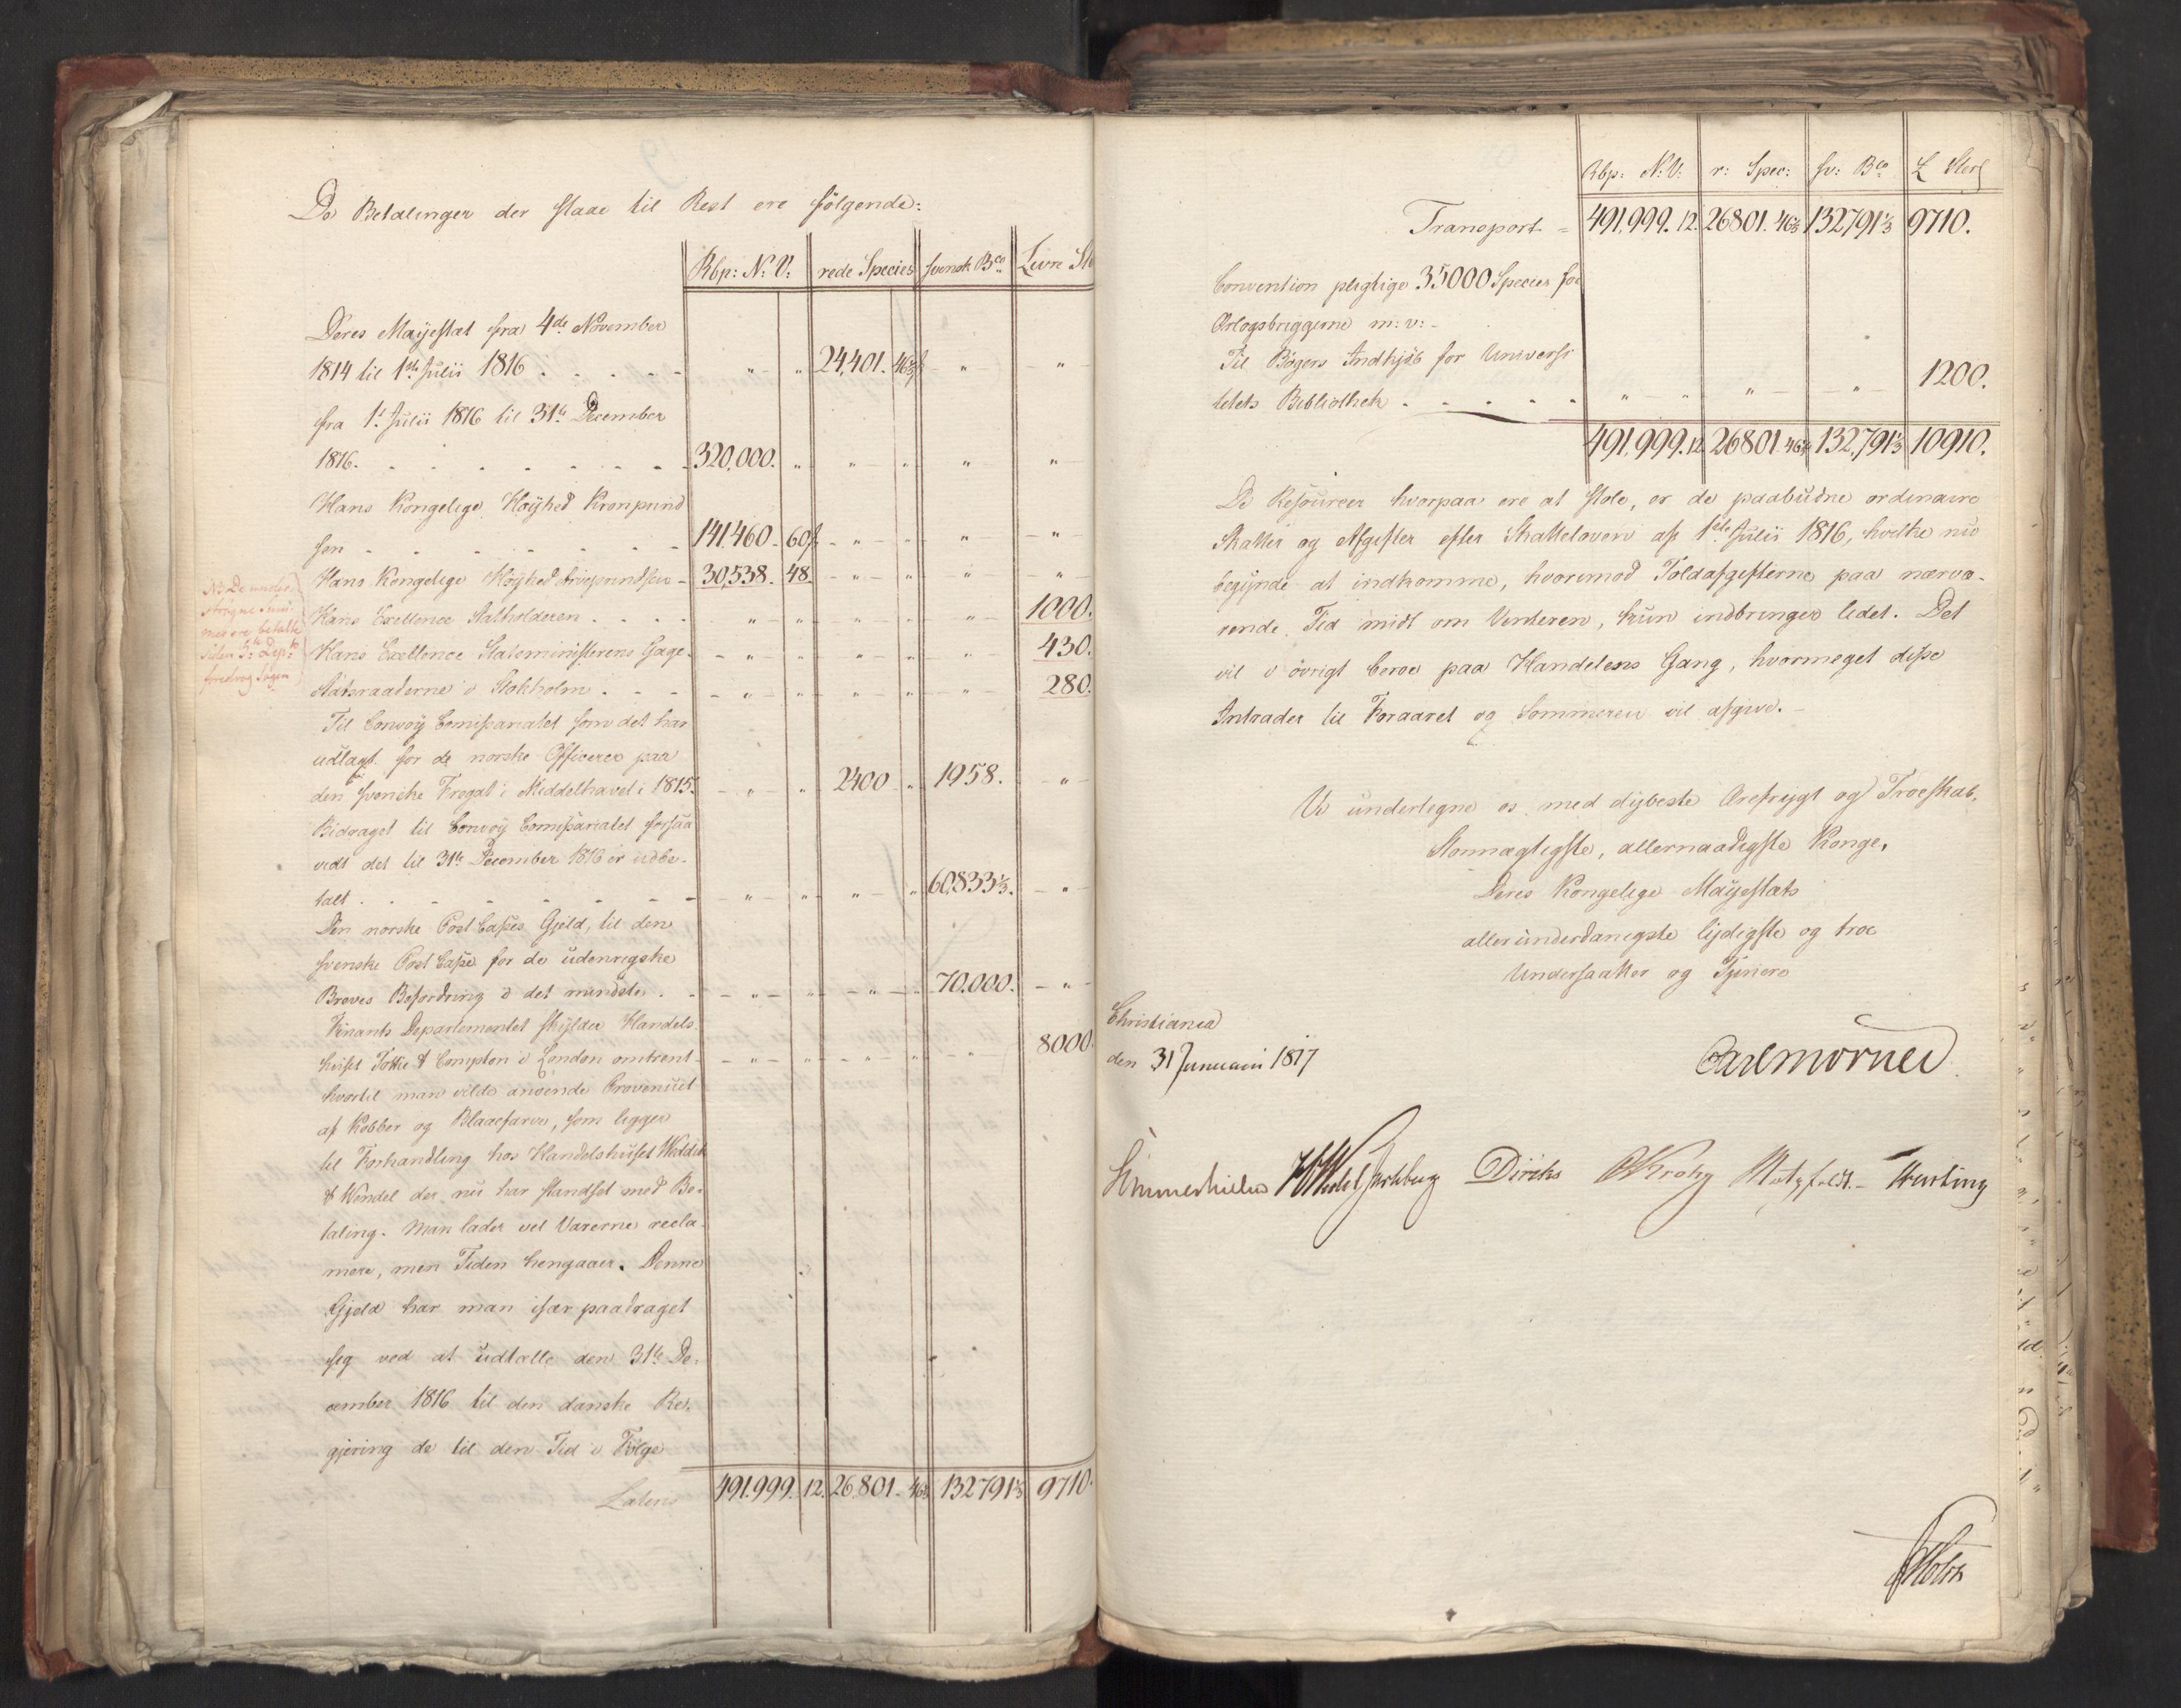 De Betalinger der staae til Rest ere følgende:
Rbp: N: V: rede Species svensk Bco Livre St
Deres Mayestæt fra 4de November
1814 til 1ste Julii 1816 . . . . . " " 24,401. 46⅔ " "
fra 1ste Julii 1816 til 31te December
1816. . . . . . . . . 320,000. " " " " "
Hans Kongelige Høyhed Kronprind
sen - - - - - - - 141,460 60 " " " "
Hans Kongelige Høyhed Arveprindsen - 30,538. 48. " " " "
Hans Exellence Statholderen . . . . " " " " " 1000.
Hans Exellence Statsministerens Gage. " " " " " 430.
Statsraaderne i Stokholm . . . " " " " " 280.
NB De under-
strøgne Sum-
mer ere betalte
siden 3de Dept
foredrog Sagen
Til Convoy Comissariatet som det har
udlagt for de norske Officerer paa
den svenske Fregat i Middelhavet i 1815. " " 2400 " 1958. "
Bidraget til Convoy Comissariatet forsaa
vidt det til 31te December 1816 er udbe-
talt . . . . . . . " " " " 60,833⅓. "
Den norske Post Casses Gjeld, til den
svenske Post Casse for de udenrigske
Breves Befordring i det mindste . " " " " 70.000. "
Finants Departementet skylder Handels-
huset Tottie & Compton i London omtrent " " " " " 8000.
hvortil man vilde anvende Provenuet
af Kobber og Blaaefarve, som ligger
til Forhandling hos Handelshuset Weddik
& Wendel der nu har standset med Be-
taling. Man lader vel Varerne recla-
mere, men Tiden hengaaer. Denne
Gjeld har man især paadraget
sig ved at udtælle den 31te De-
cember 1816 til den danske Re-
gjering de til den Tid i Følge
Lateris 491.999. 12. 26.801. 46⅔ 132791⅓ 9710.
Rbp: N: V: r: Spec: sv: Bco £ Sterl
Transport - 491,999. 12. 26801. 46⅔ 132791⅓ 9710.
Convention pligtige 35000 Species for
Orlogsbriggerne m: v: -
Til Bøgers Indkjøb for Universi
tetets Bibliothek . - - - - " " " " 1200.
491,999. 12 26801. 46⅔ 132,791⅓ 10910.
De Resourcer hvorpaa ere at stole, er de paabudne ordinaire
Skatter og Afgifter efter Skatteloven af 1ste Julii 1816, hvilke nu
begynde at indkomme, hvorimod Toldafgifterne paa nærvæ-
rende Tid midt om Vinteren, kun indbringer lidet. Det
vil i øvrigt beroe paa Handelens Gang, hvormeget disse
Intrader til Foraaret og Sommeren vil afgive. -
Vi undertegne os med dybeste Ærefrygt og Troeskab,
Stormægtigste, allernaadigste Konge,
Deres Kongelige Mayestæts
allerunderdanigste lydigste og troe
Undersaatter og Tjenere
Christiania
den 31 Januarii 1817
Carl Mörner
Sommerhielm Wedel Jarlsberg Diriks CKrohg Motzfeldt. - Hersting
Holst